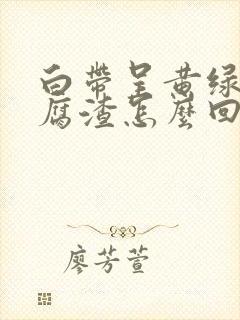 白帶呈黄绿
腐渣怎麼回
廖芳萱